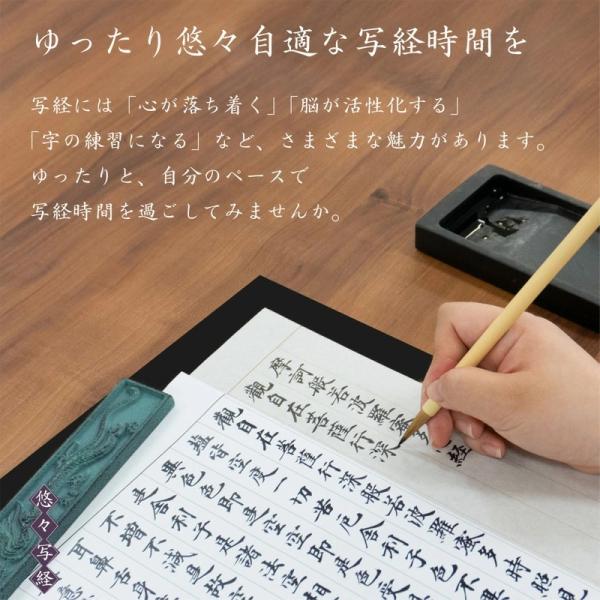 ゆったり悠々自適な写経時間を
写経には「心が落ち着く」「脳が活性化する」
「字の練習になる」など、さまざまな魅力があります。
ゆったりと、自分のペースで
写経時間を過ごしてみませんか。
摩訶般若波羅蜜多経
觀自在菩薩行深
觀自在菩薩行深般若波羅蜜多時照見
蘊皆空度一切苦厄舍利子色不異
異色色即是空空即是
是舍利子是諸法空相
不增不減是故空
耳鼻舌身
悠々写経